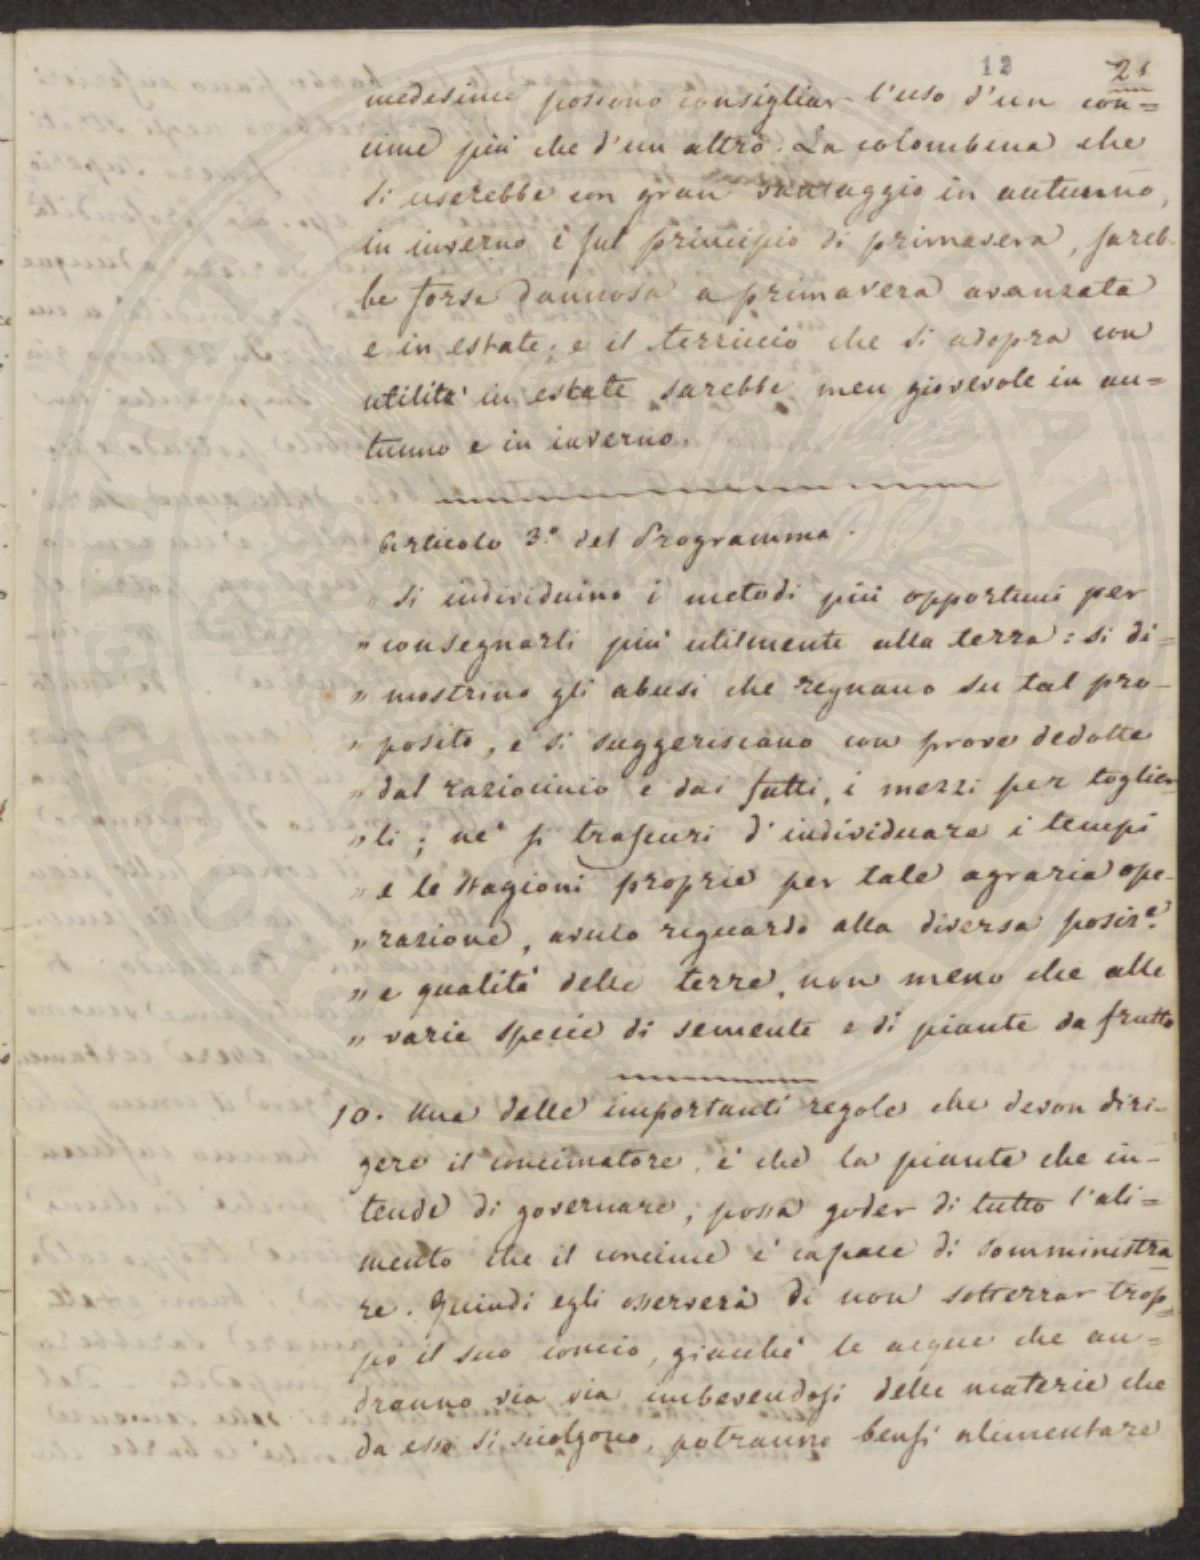 12 21
medesime possono consigliar l'uso d'un con=
cime più che d'un altro. La colombina che
si userebbe con gran vantaggio in autunno,
in inverno e sul principio di primavera, sareb-
be forse dannosa a primavera avanzata
e in estate; e il terriccio che si adopra con
utilità in estate sarebbe men giovevole in au=
tunno e in inverno.
Articolo 3.° del Programma.
Si individuino i metodi più opportuni per
„ consegnarli più utilmente alla terra: si di=
„ mostrino gli abusi che regnano su tal pro-
„ posito, e si suggeriscano con prove dedotte
„ dal raziocinio e dai fatti, i mezzi per toglier
„ li; nè si trascuri d'individuare i tempi
„ e le stagioni proprie per tale agraria ope-
„ razione, avuto riguardo alla diversa posiz.e
„ e qualità delle terre, non meno che alle
„ varie specie di semente e di piante da frutto
10. Una delle importanti regole che devon diri-
gere il concimatore, è che la pianta che in-
tende di governare, possa goder di tutto l'ali=
mento che il concime è capace di somministra
re. Quindi egli osserverà di non sotterrar trop=
po il suo concio, giacchè le acque che an=
dranno via via imbevendosi delle materie che
da esso si sciolgono, potranno bensì alimentare